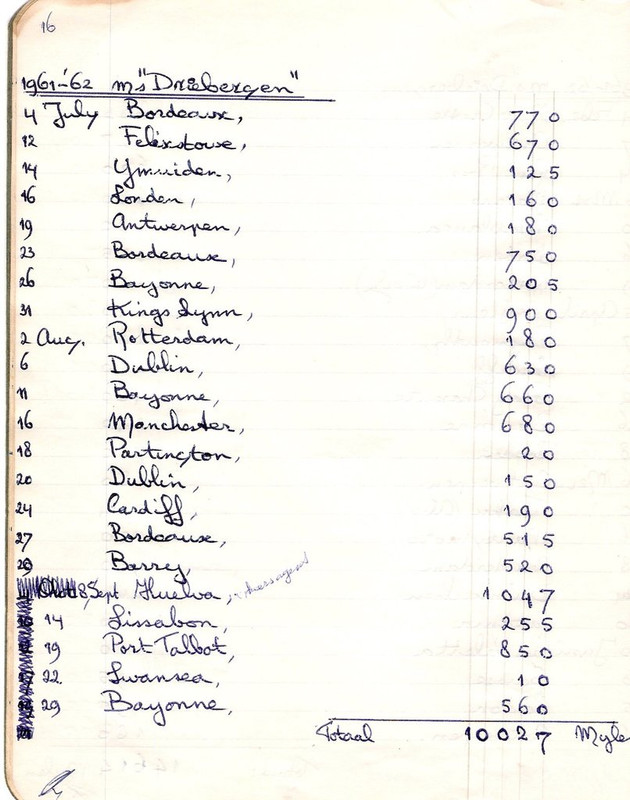 16
1961-'62 ms "Driebergen"
4 July Bordeaux, 770
12 Felixstowe, 670
14 Ymuiden, 125
16 Londen, 160
19 Antwerpen, 180
23 Bordeaux, 750
26 Bayonne, 205
31 Kings Lynn, 900
2 Aug. Rotterdam, 180
6 Dublin, 630
11 Bayonne, 660
16 Manchester, 680
18 Partington, 20
20 Dublin, 150
24 Cardiff, 190
27 Bordeaux, 515
Barry, 520
8 Sept Huelva, 1047
14 Lissabon, 255
19 Port Talbot, 850
22. Swansea, 10
29 Bayonne, 560
Totaal 10027 Myle